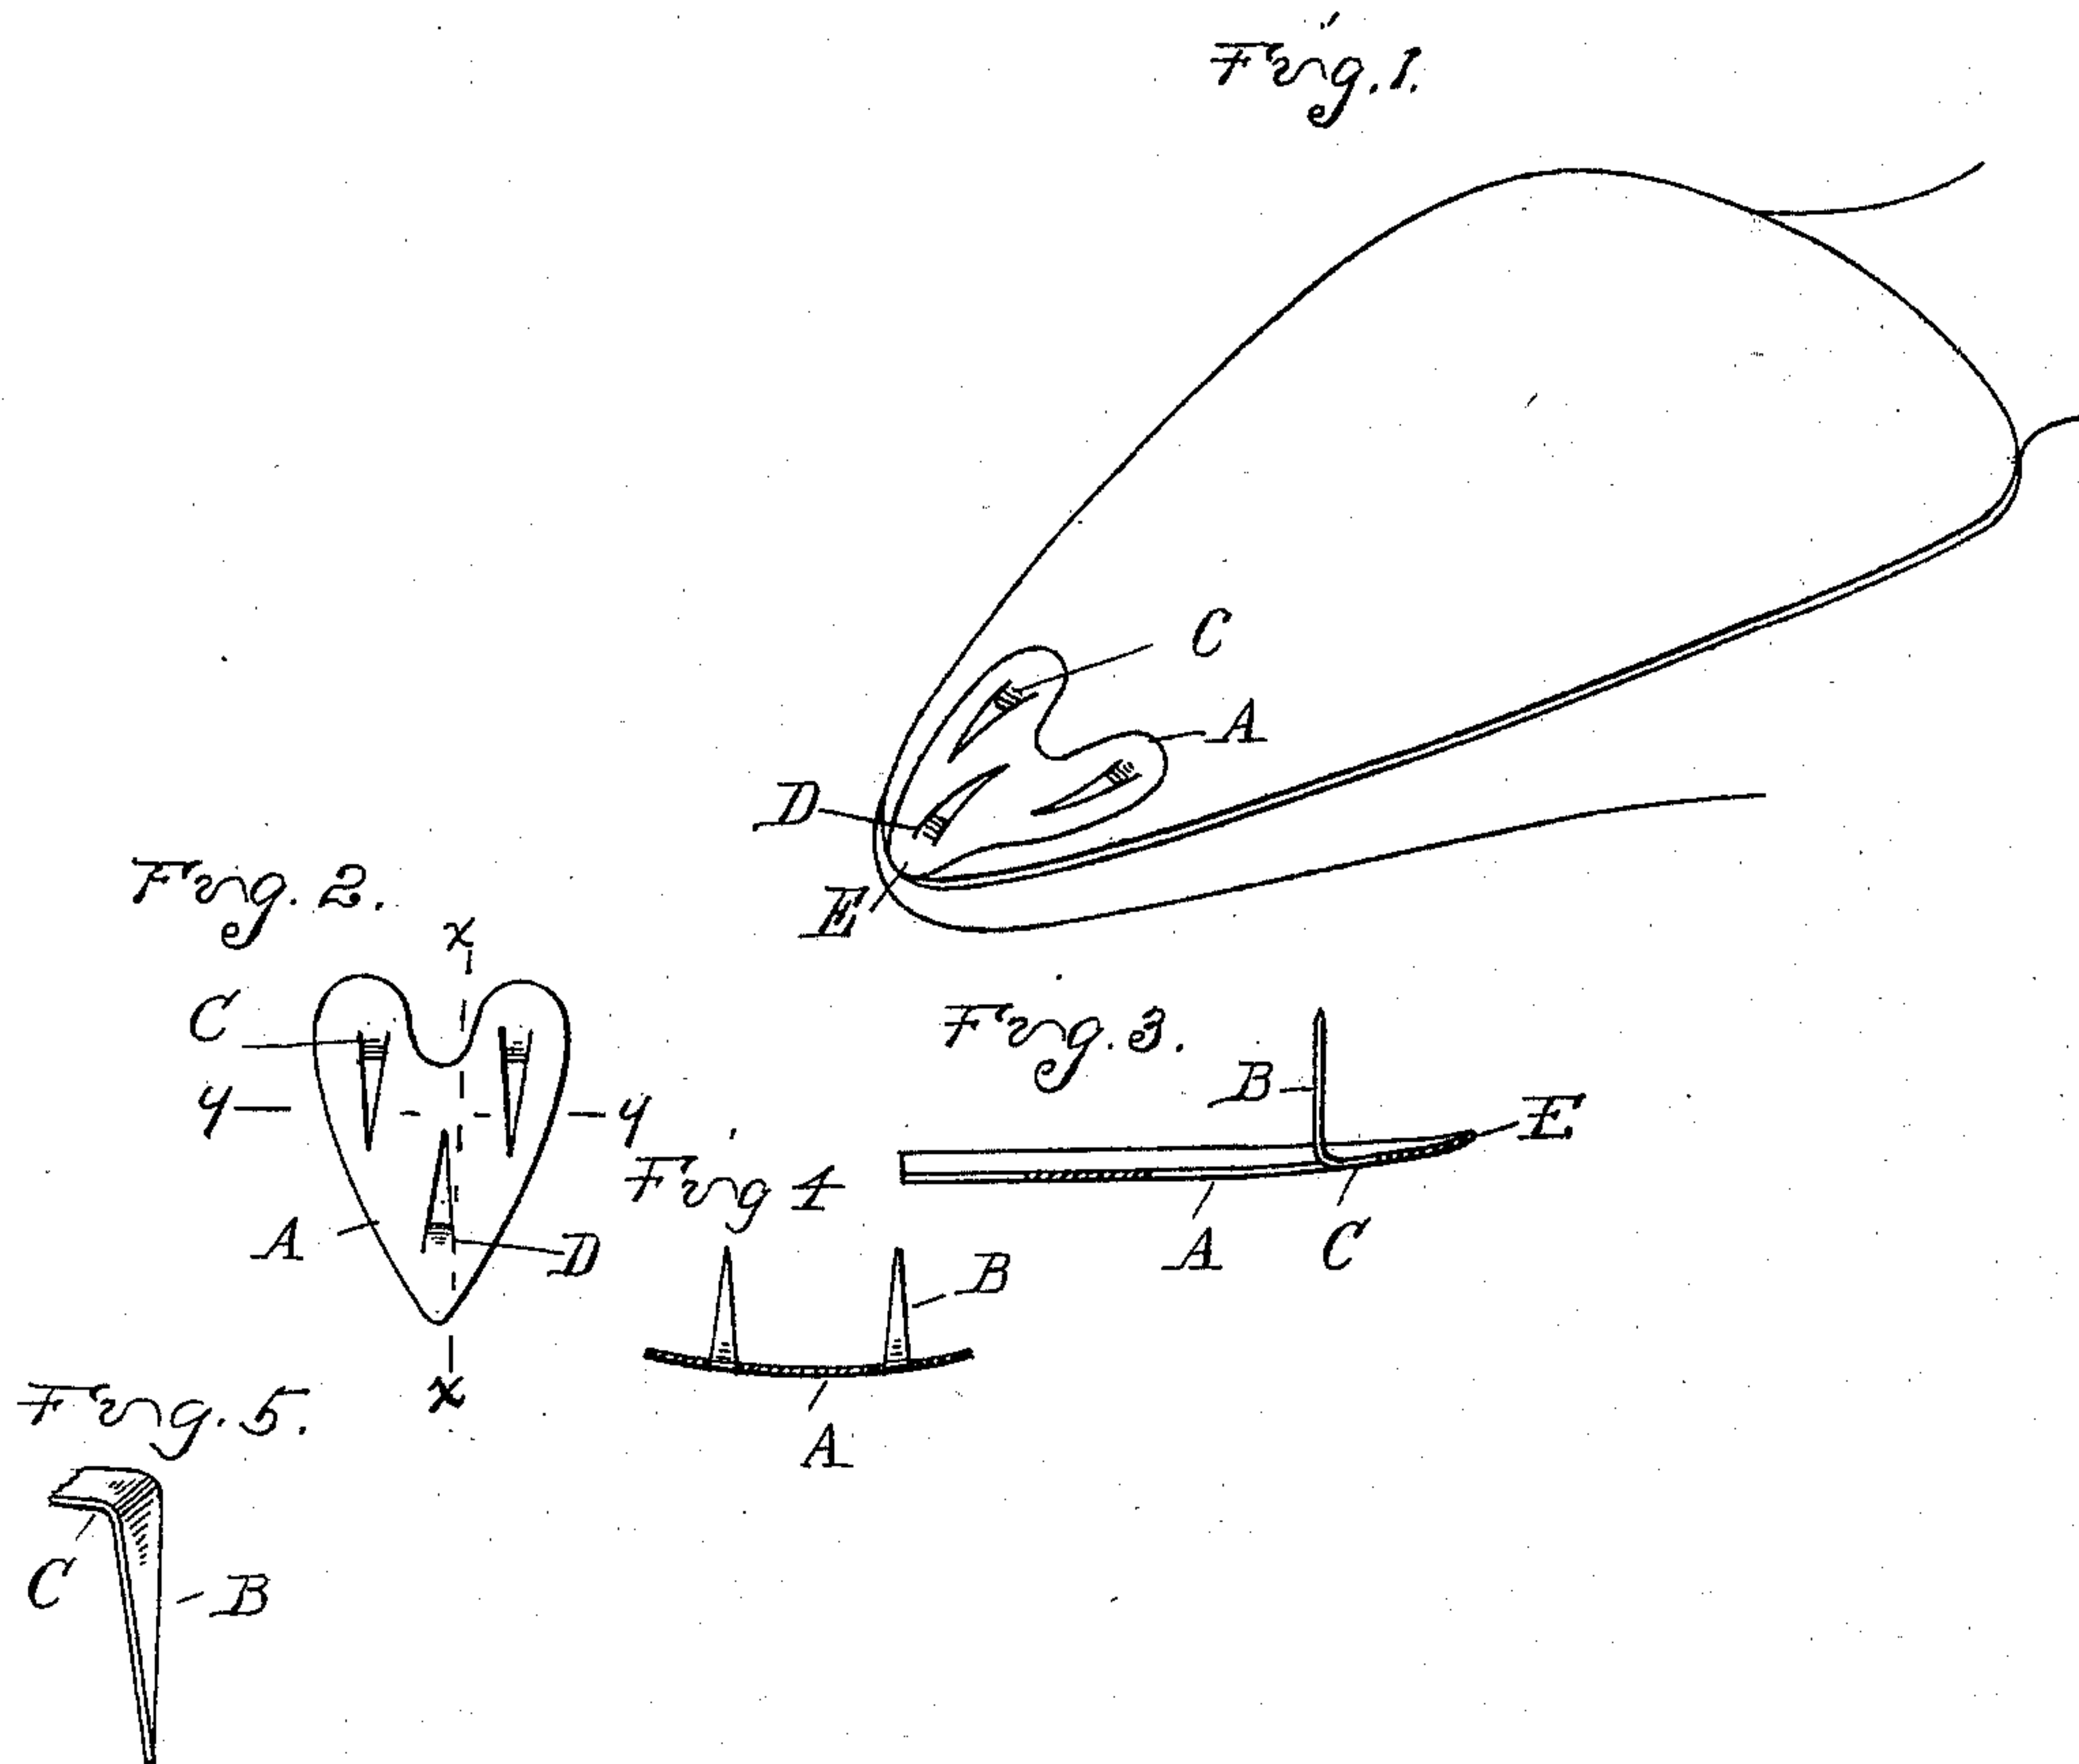 Fig. 1.
C
A
D
E
Fig. 2.
x
C
y
y
A
D
x
Fig. 3.
B
E
A
C
Fig 4
B
A
Fig. 5.
C
B